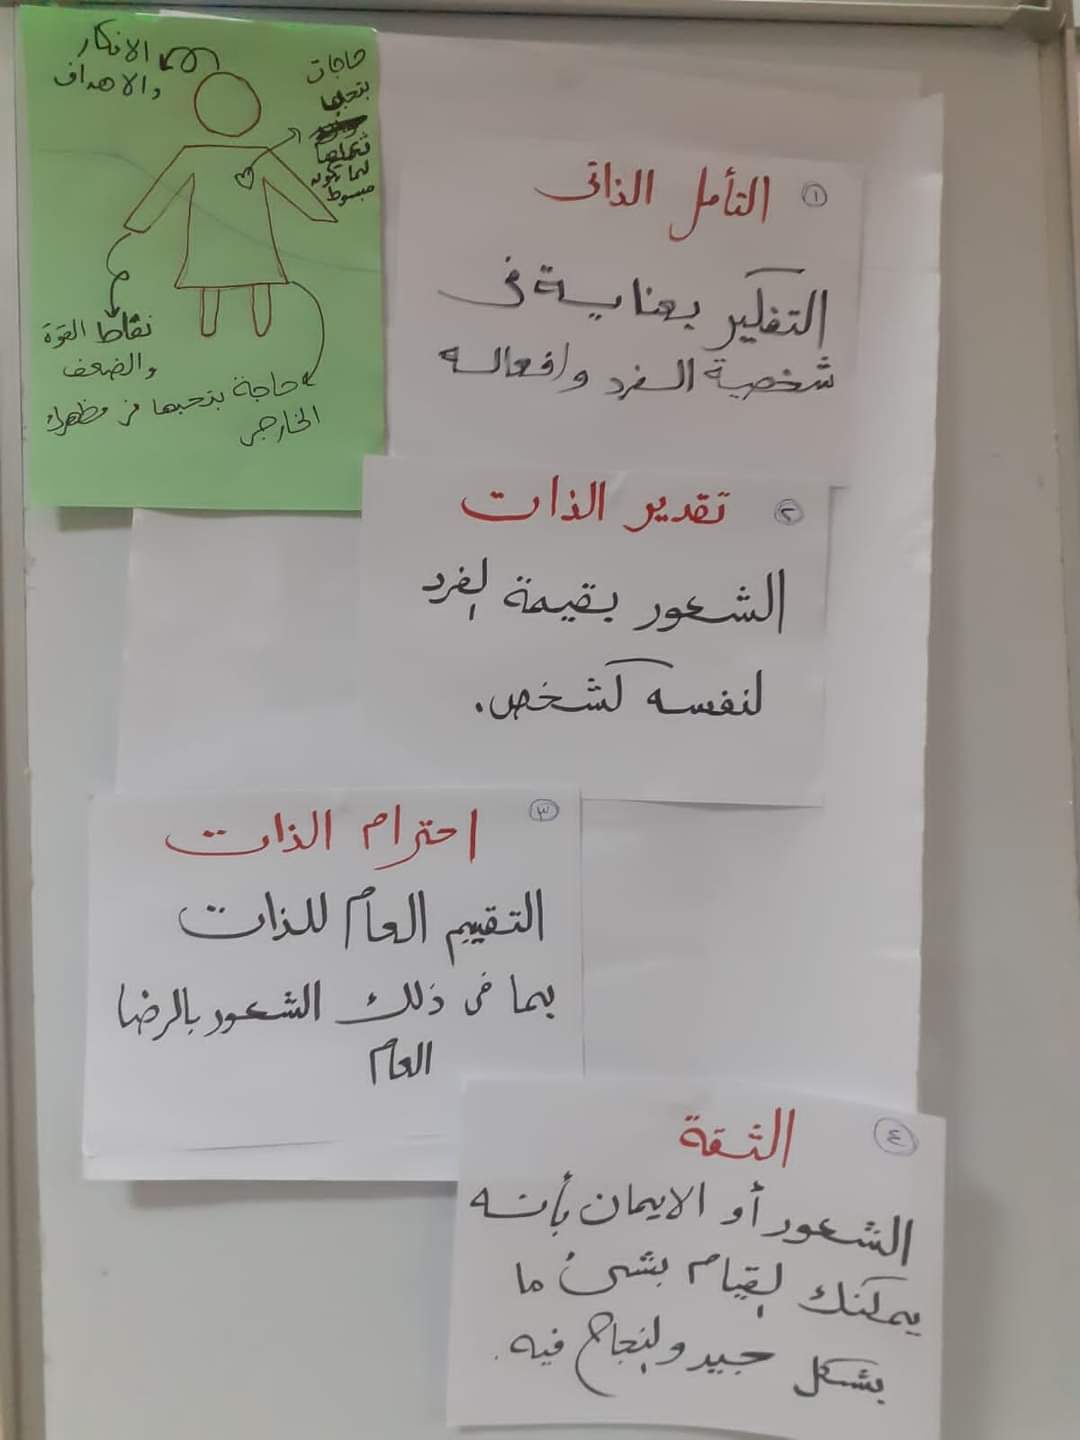 الافكار
والاهداف
حاجات
بتحبها
تعمليها
لما تكونه
مبسوط
نقاط القوة
والضعف
حاجة بتحبها فى مظهرك
الخارجى
١ التأمل الذاتى
التفكير بعناية فى
شخصية الفرد وافعاله
٢ تقدير الذات
الشعور بقيمة الفرد
لنفسه كشخص.
٣ احترام الذات
التقييم العام للذات
بما فى ذلك الشعور بالرضا
العام
٤ الثقة
الشعور أو الايمان بأنه
يمكنك القيام بشئ ما
بشكل جيد والنجاح فيه.